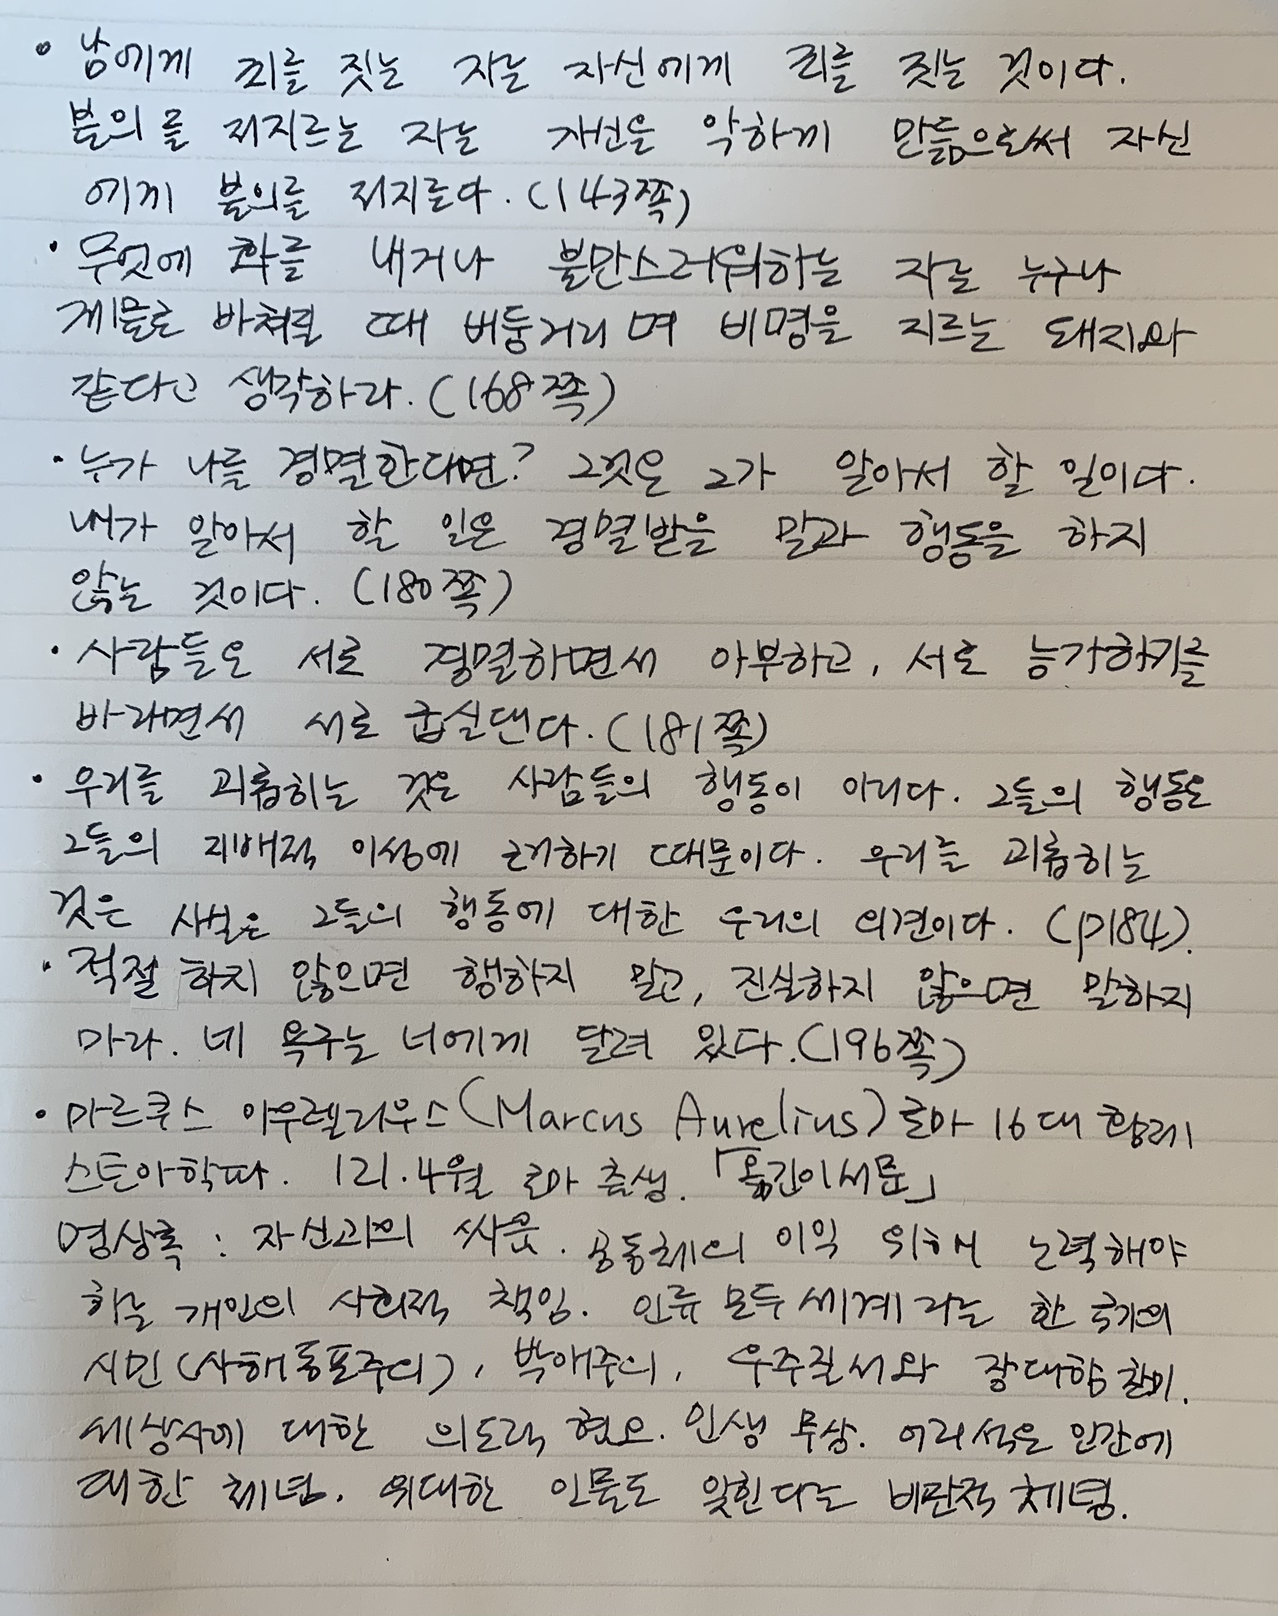 • 남에게 죄를 짓는 자는 자신에게 죄를 짓는 것이다.
불의를 저지르는 자는 자신을 악하게 만듦으로써 자신
에게 불의를 저지른다. (143쪽)
• 무엇에 화를 내거나 불만스러워하는 자는 누구나
제물로 바쳐질 때 버둥거리며 비명을 지르는 돼지와
같다고 생각하라. (168쪽)
• 누가 나를 경멸한다면? 그것은 그가 알아서 할 일이다.
내가 알아서 할 일은 경멸받을 말과 행동을 하지
않는 것이다. (180쪽)
• 사람들은 서로 경멸하면서 아부하고, 서로 능가하기를
바라면서 서로 굽실댄다. (181쪽)
• 우리를 괴롭히는 것은 사람들의 행동이 아니다. 그들의 행동은
그들의 지배적 이성에 근거하기 때문이다. 우리를 괴롭히는
것은 사실은 그들의 행동에 대한 우리의 의견이다. (p184).
• 적절하지 않으면 행하지 말고, 진실하지 않으면 말하지
마라. 네 욕구는 너에게 달려 있다. (196쪽)
• 마르쿠스 아우렐리우스(Marcus Aurelius) 로마 16대 황제
스토아학파. 121.4월 로마 출생. 「옮긴이서문」
명상록 : 자신과의 싸움. 공동체의 이익 위해 노력해야
하는 개인의 사회적 책임. 인류 모두 세계라는 한 국가의
시민(사해동포주의), 박애주의, 우주질서와 장대함 찬미.
세상사에 대한 의도적 혐오. 인생 무상. 어리석은 인간에
대한 체념. 위대한 인물도 잊힌다는 비판적 체념.